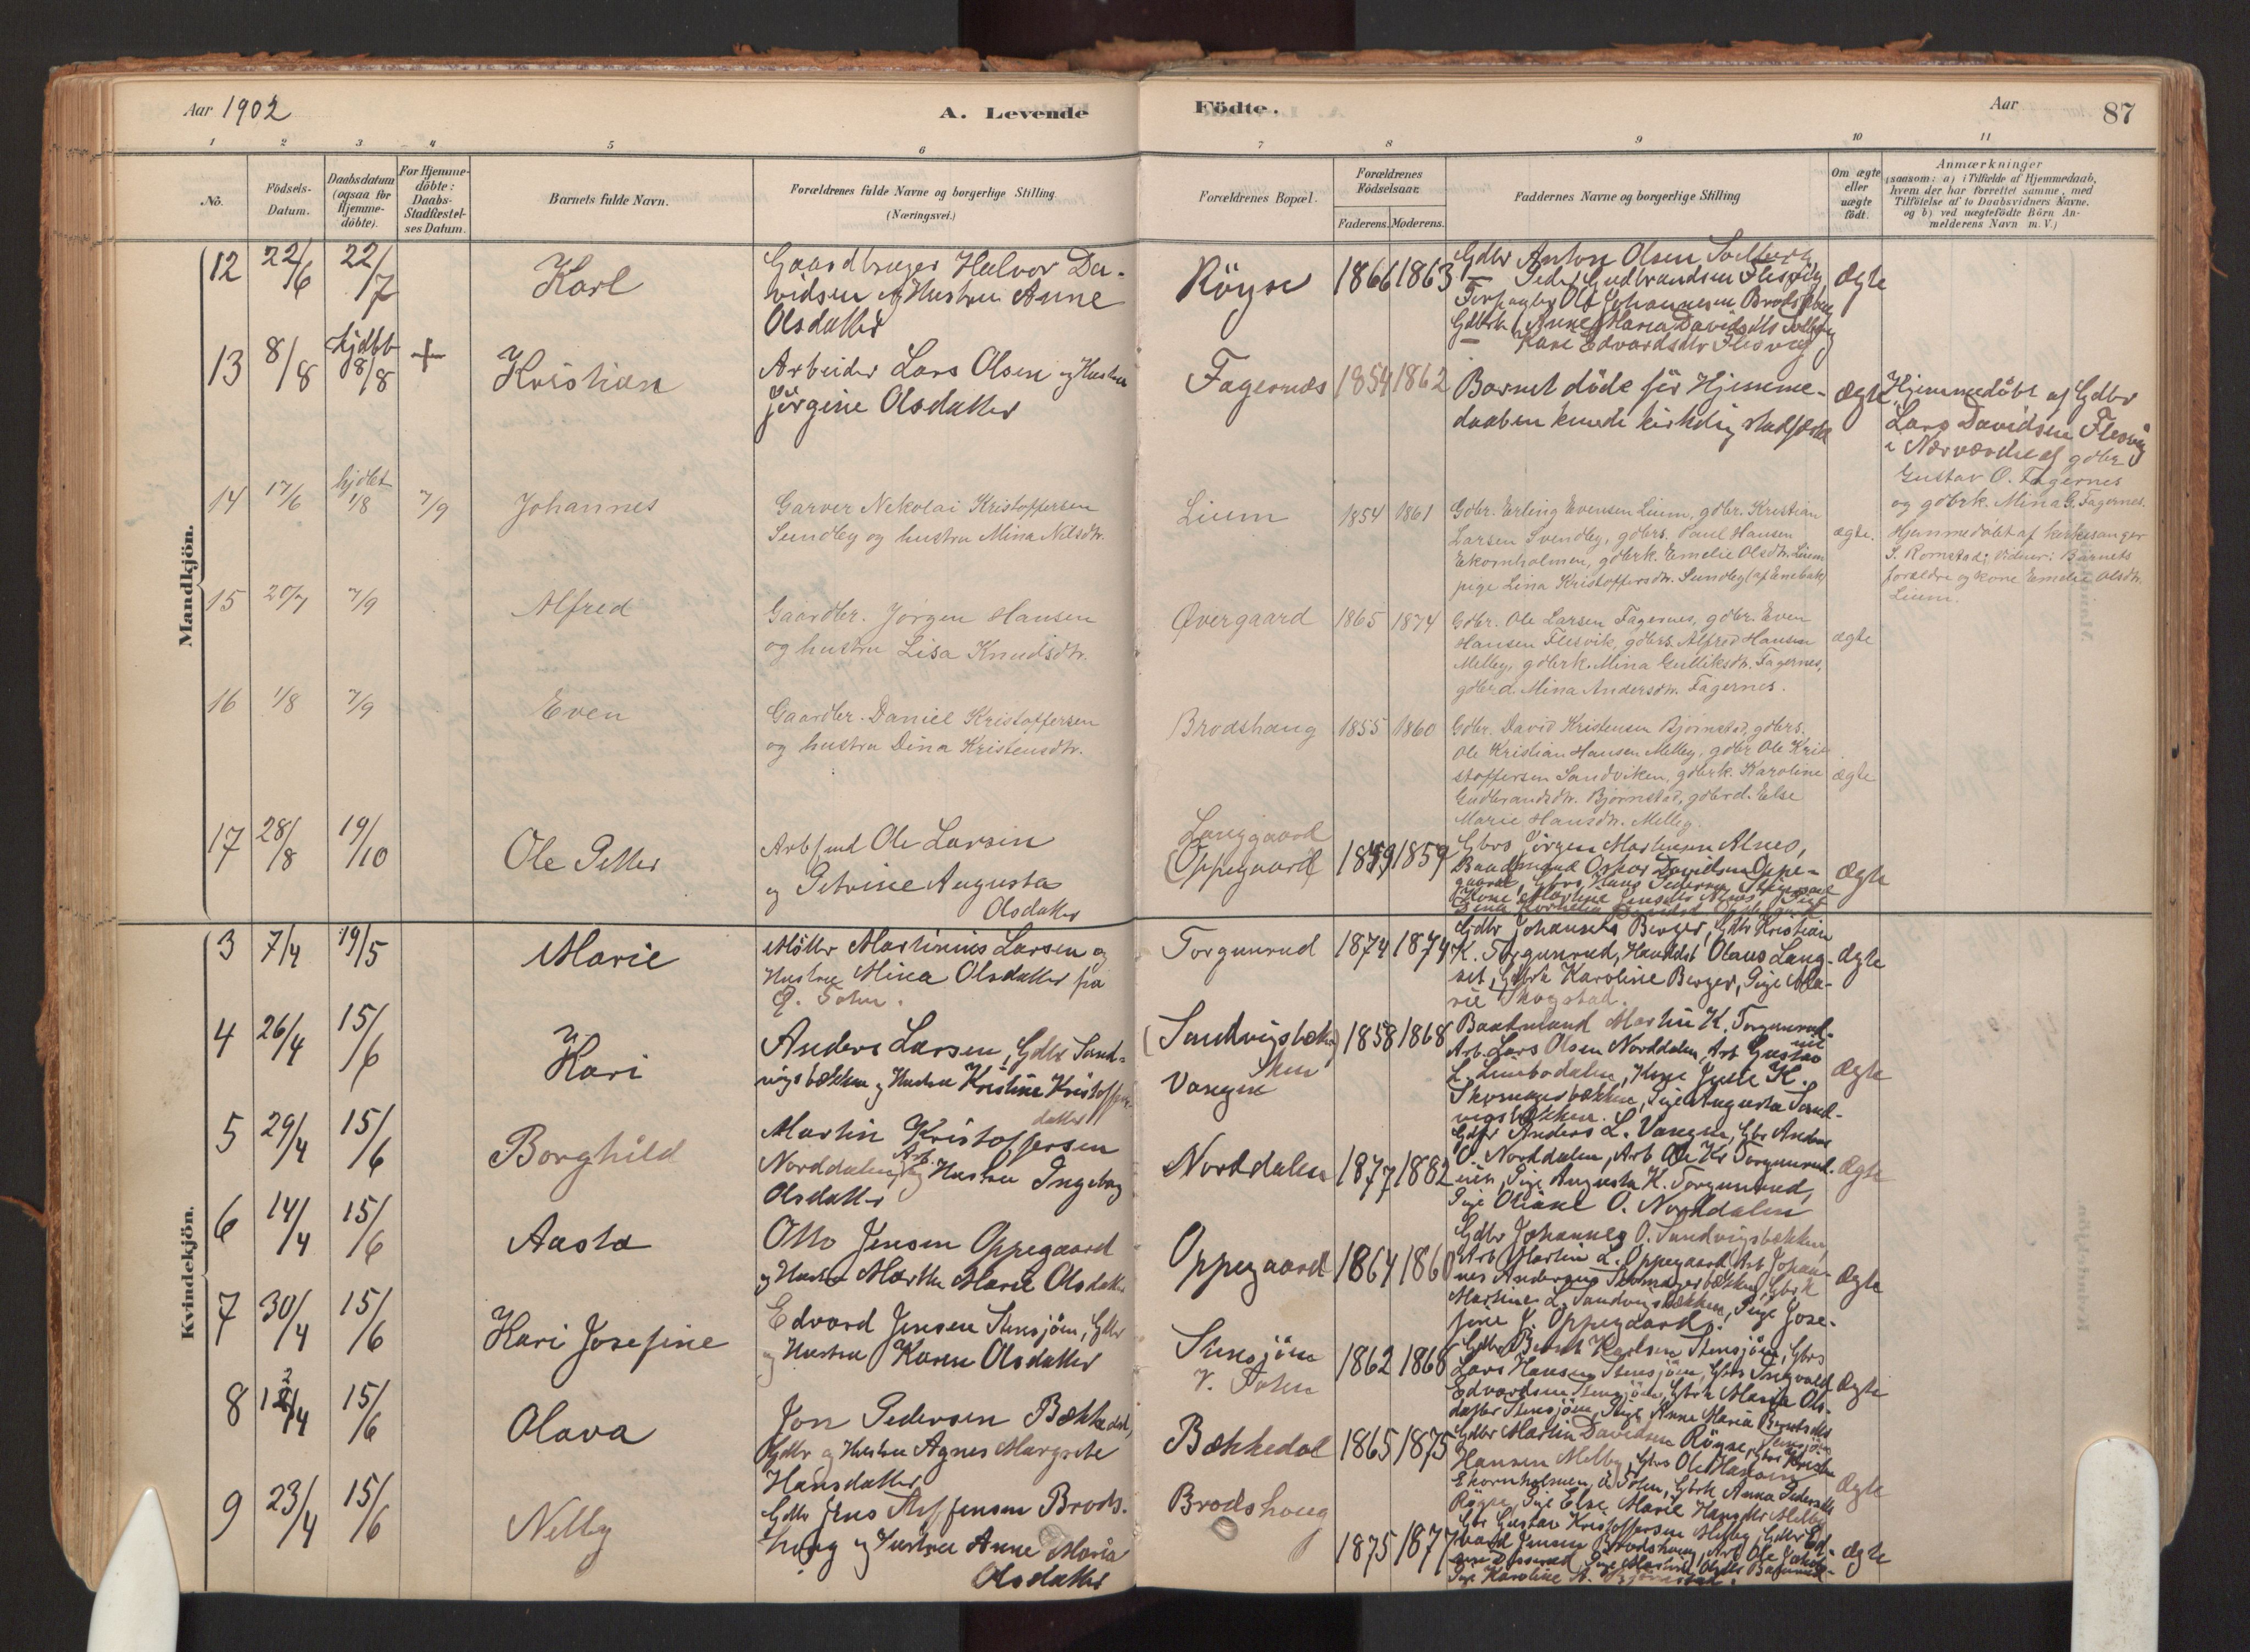 Aar 1902
A. Levende
Födte.
Aar
87
1 2 3 4 5 6 7 8 9 10 11
No.
Födsels-
Datum.
Daabsdatum
(ogsaa for
Hjemme-
döbte).
For Hjemme-
döbte:
Daabs-
Stadfæstel-
ses Datum.
Barnets fulde Navn.
Forældrenes fulde Navne og borgerlige Stilling
(Næringsvei.)
Forældrenes Bopæl.
Forældrenes
Födselsaar.
Faderens. Moderens.
Faddernes Navne og borgerlige Stilling
Om ægte
eller
uægte
födt.
Anmærkninger
(saasom: a) i Tilfælde af Hjemmedaab,
hvem der har forrettet samme, med
Tilföielse af to Daabsvidners Navne.
og b) ved uægtefödte Börn An-
melderens Navn m.V.)
Mandkjön.
12 22/6 22/7
Karl
Gaardbruger Halvor Da-
vidsen og Hustru Anne
Olsdatter
Röyse
1866 1863
Gdbr Anton Olsen Solberg
— Peder Gudbrandsen Flesvig
Ole Johannesen Brodshoug
Anne Maria Davidsdtr Solberg
— Kari Edvardsdtr Flesvig
Ægte
13 8/8 hjdbt 8/8 +
Kristian
Arbeider Lars Olsen og Hustru
Jörgine Olsdatter
Fagernæs
1854 1862
Barnet döde för Hjemme-
daaben kunde kirkelig stadfæstes
Ægte
Hjemmedöbt af Gdbr
Lars Davidsen Flesvig
i Nærværelse af gdbr
Gustav O. Fagernes
og gdbrk. Mina G. Fagernes.
14 17/6 hjdbt 1/8 7/9
Johannes
Garver Nekolai Kristoffersen
Sundby og hustru Mina Nilsdtr.
Lium
1854 1861
Gdbr. Erling Evensen Lium, gdbr. Kristian
Larsen Svendby, gdbrs. Paul Hansen
Ekornholmen, gdbrk. Emelie Olsdtr. Lium
pige Lina Kristoffersdtr. Sundby (af Enebak)
ægte.
Hjemmedøbt af kirkesanger
S. Romstad; Vidner: Barnets
forældre og kone Emelie Olsdtr.
Lium.
15 20/7 7/9
Alfred
Gaardbr. Jørgen Hansen
og hustru Lisa Knudsdtr.
Øvergaard
1865 1874
Gdbr. Ole Larsen Fagernes, gdbr. Even
Hansen Flesvik, gdbrs. Alfred Hansen
Melby, gdbrk. Mina Gulliksdtr. Fagernes,
gdbrd. Mina Andersdtr. Fagernes.
ægte
16 1/8 7/9
Even
Gaardbr. Daniel Kristoffersen
og hustru Dina Kristensdtr.
Brodshaug
1855 1860
Gdbr. David Kristensen Bjørnstad, gdbrs.
Ole Kristian Hansen Melby, gdbr Ole Kri-
stoffersen Sandviken, gdbrk. Karoline
Gudbrandsdtr. Bjørnstad, gdbrd. Else
Marie Hansdtr. Melby.
ægte
17 28/8 19/10
Ole Petter
Arbsmd Ole Larsen
og Petrine Augusta
Olsdatter
Langgaard
(Oppegaard)
1859 1859
Gbrs Jörgen Martinsen Alnes,
Baadsmand Oskar Davidsen Oppe-
gaard, Gbrs Hans Pedersen
Ægte
Kvindekjön.
3 7/4 19/5
Marie
Møller Martinius Larsen og
Hustru Mina Olsdatter fra
Ø. Toten.
Torgunrud
1874 1874
Gdbr Johannes Berger, Gdbr Kristian
K. Torgunrud, Olaus Lang-
set, Gbrk Karoline Berger, Pige Ma-
rie Skogstad.
Ægte
4 26/4 15/6
Kari
Anders Larsen, Gdbr Sand-
vigsbækken og Hustru Kristine Kristoffers-
datter
(Sandvigsbækken)
Vangen
1858 1868
Baadsmand Martin K. Torgunrud-
Arb. Lars Olsen Norddalen, Arb Gustav
L. Limbodalen, Kone Julie K.
Skomagerbækken, Pige Augusta Sand-
vigsbækken.
Ægte
5 29/4 15/6
Borghild
Martin Kristoffersen
Norddalen, Arb. og Hustru Ingeborg
Olsdatter
Norddalen
1877 1882
Gdbr Anders L. Vangen, Gbr Anders
O. Norddalen, Arb Ole Kr Torgunrud-
eien, Pige Augusta K. Torgunrud,
Pige Oliane O. Norddalen
Ægte
6 14/4 15/6
Aasta
Otto Jensen Oppegaard
og Hustru Marthe Marie Olsdatter
Oppegaard
1864 1860
Gdbr Johannes O. Sandvigsbækken,
Arb Martin L. Oppegaard, Arb Johan-
nes Andersens Skomagerbækken, Gbrk
Martine L. Sandvigsbækken, Pige Jose-
fine J. Oppegaard.
Ægte
7 30/4 15/6
Kari Josefine
Edvard Jensen Stensjöen, Gdbr
og Hustru Karen Olsdatter
Stensjöen
V. Toten
1862 1868
Gdbr Bernt Karlsen Stensjöen, Gbrs
Lars Hansen Stensjöen, Gbrs Ingvald
Edvardsen Stensjöen, Gbrk Maria Ols-
datter Stensjöen, Pige Anne Maria Berntsdtr
Stensjöen
Ægte
8 12/4 15/6
Olava
Jon Pedersen Bækkedal,
Gdbr og Hustru Agnes Margrete
Hansdatter
Bækkedal
1865 1875
Gdbr Martin Davidsen Röyse, Gbrs Kristen
Hansen Melby, Gbrs Ole Hansen
Ekornholmen, Ø. Toten, Gbrk Anna Pedersdtr
Röyse, Pige Else Marie Hansdtr Melby
Ægte
9 23/4 15/6
Nelly
Gdbr Jens Steffensen Brods-
houg og Hustru Anne Maria
Olsdatter
Brodshoug
1875 1877
Gbr Gustav Kristoffersen Melby, Gdbr Ed-
vard Jensen Brodshoug, Arb Ole
Pige Karoline A. Bjørnstad.
Ægte